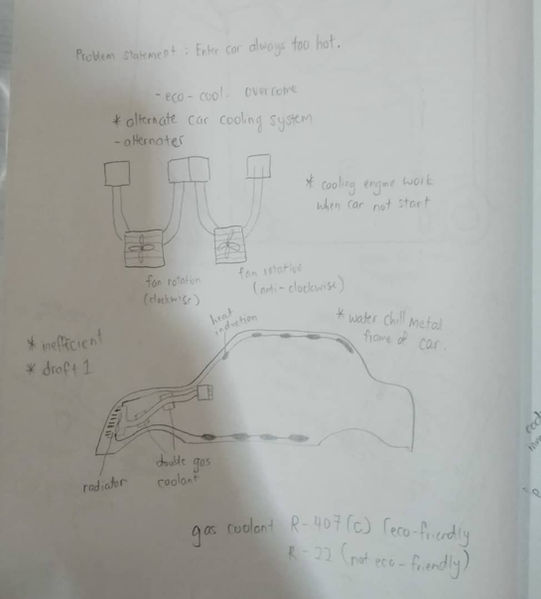 Problem statement : Enter car always too hot.
- eco - cool. overcome
* alternate car cooling system
- alternater
* cooling engine work
when car not start
fan rotation
(clockwise)
fan rotation
(anti-clockwise)
heat
induction
* water chill metal
frame of car.
* inefficient
* draft 1
radiator
double gas
coolant
gas coolant R-407(c) (eco-friendly
R-22 (not eco-friendly)